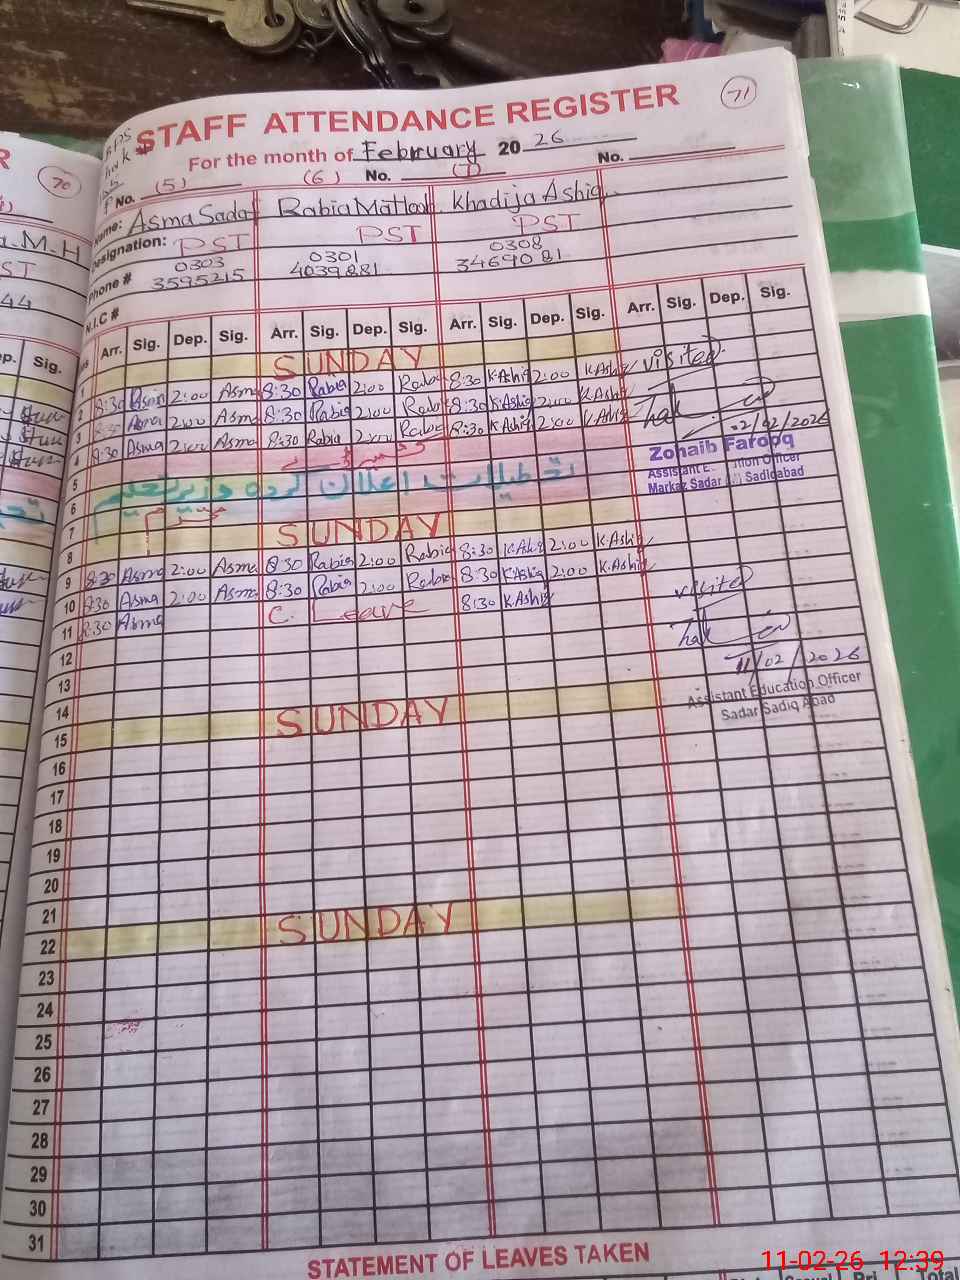 STAFF ATTENDANCE REGISTER
71
For the month of February 20 26
No. (5) (6) No. (7) No.
Name: Asma Sada Rabia Mattar Khadija Ashiq
Designation: PST PST PST
Phone # 0303 3595215 0301 4039881 0308 3469081
N.I.C #
Arr. Sig. Dep. Sig. Arr. Sig. Dep. Sig. Arr. Sig. Dep. Sig. Arr. Sig. Dep. Sig.
1 SUNDAY
2 8:30 Asma 2:00 Asma 8:30 Rabia 2:00 Rabia 8:30 K.Ashiq 2:00 K.Ashiq visited
3 8:30 Asma 2:00 Asma 8:30 Rabia 2:00 Rabia 8:30 K.Ashiq 2:00 K.Ashiq
4 8:30 Asma 2:00 Asma 8:30 Rabia 2:00 Rabia 8:30 K.Ashiq 2:00 K.Ashiq 02/02/2026
Zohaib Farooq
Assistant Education Officer
Markaz Sadar Sadiqabad
5
6 تعطیلات اعلان کردہ وزیر تعلیم
7
محترم
8 SUNDAY
9 8:30 Asma 2:00 Asma 8:30 Rabia 2:00 Rabia 8:30 K.Ashiq 2:00 K.Ashiq
10 8:30 Asma 2:00 Asma 8:30 Rabia 2:00 Rabia 8:30 K.Ashiq 2:00 K.Ashiq visited
11 8:30 Asma C. Leave 8:30 K.Ashiq
11/02/2026
Assistant Education Officer
Sadar Sadiq Abad
12
13
14
15 SUNDAY
16
17
18
19
20
21
22 SUNDAY
23
24
25
26
27
28
29
30
31
STATEMENT OF LEAVES TAKEN
11-02-26 12:39
R
70
M.H
ST
44
Dep. Sig.